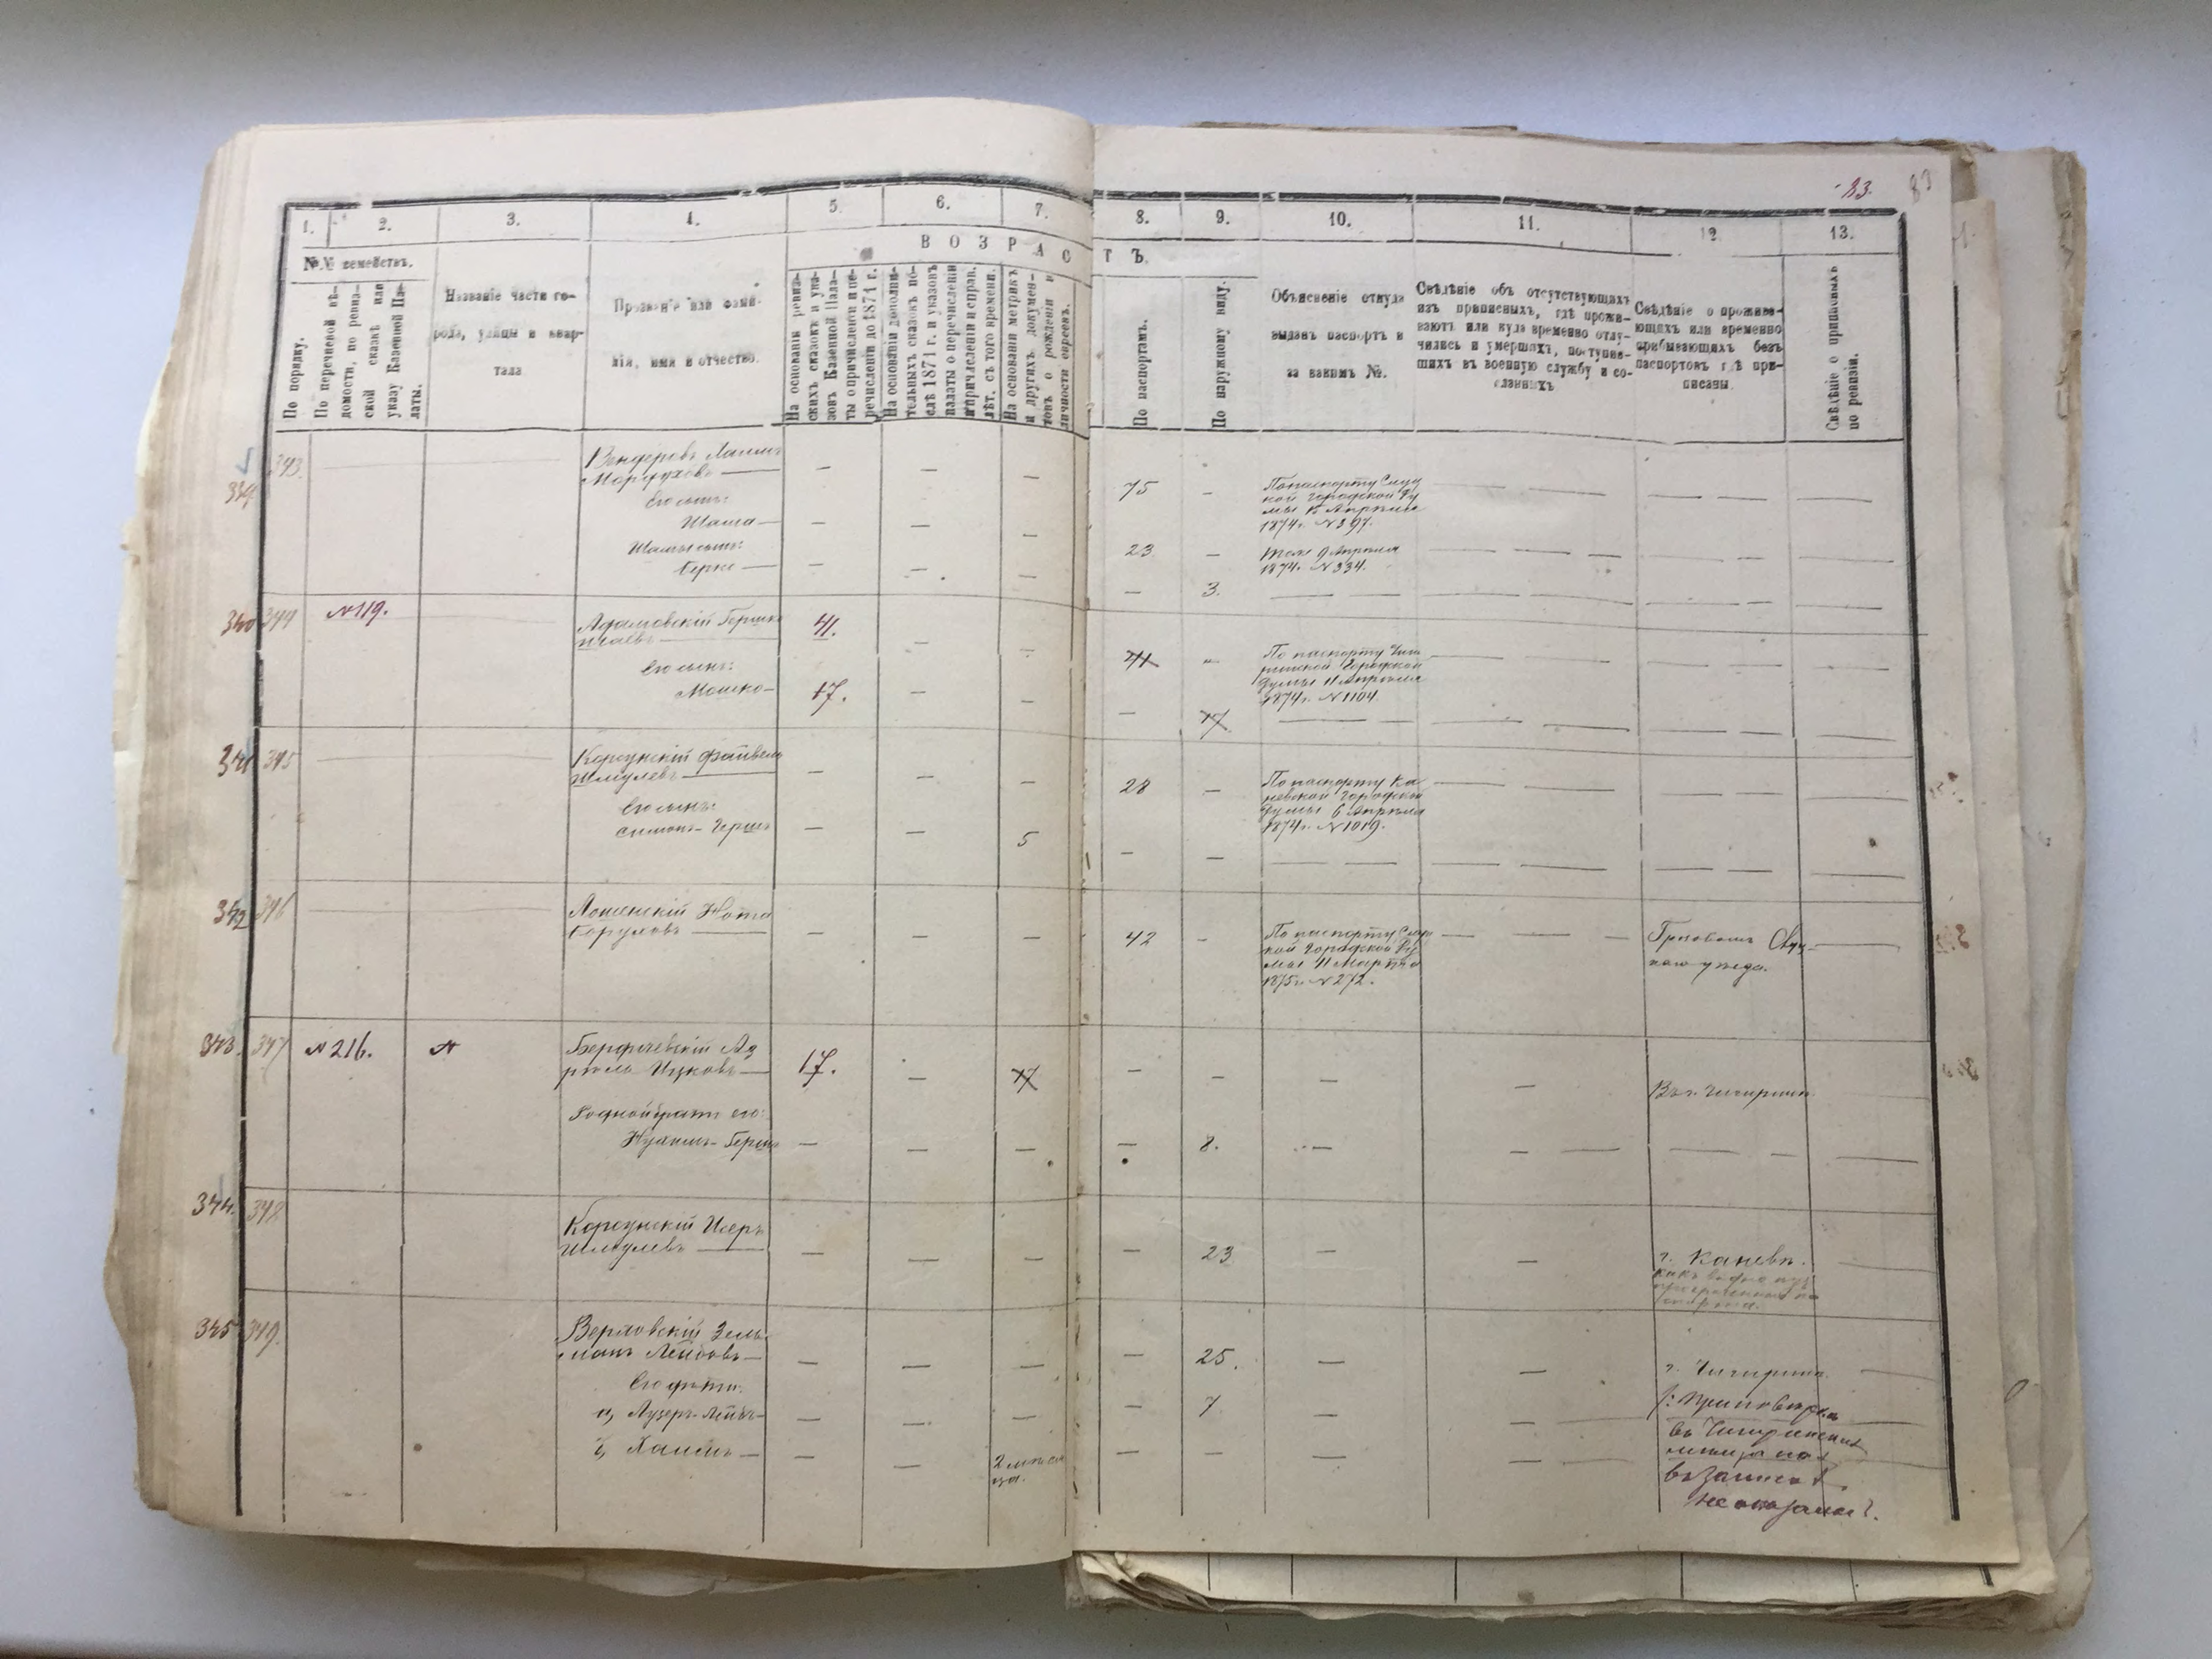 83.
83
1.
2.
3.
4.
5.
6.
7.
8.
9.
10.
11.
12.
13.
ВОЗРАСТЪ.
№№ семействъ.
По порядку.
По перечневой вѣ-
домости, по ревиз-
ской сказкѣ или
указу Казенной Па-
латы.
Названіе части го-
рода, улицы и квар-
тала
Прозваніе или фами-
лія, имя и отчество.
На основаніи ревиз-
скихъ сказокъ и ука-
зовъ Казенной Пала-
ты о причисленіи и пе-
речисленіи до 1871 г.
На основаніи дополни-
тельныхъ сказокъ по-
слѣ 1871 г. и указовъ
палаты о перечисленіи
и причисленіи и справ.
лѣт. съ того времени.
На основаніи метрикъ
и другихъ докумен-
товъ о рожденіи и
личности евреевъ.
По паспортамъ.
По наружному виду.
Объясненіе откуда
выданъ паспортъ и
за какимъ №.
Свѣдѣніе объ отсутствующихъ
изъ приписныхъ, гдѣ прожи-
ваютъ или куда временно отлу-
чились и умершихъ, поступив-
шихъ въ военную службу и со-
сланныхъ
Свѣдѣніе о прожива-
ющихъ или временно
прибывающихъ безъ
паспортовъ гдѣ при-
писаны.
Свѣдѣніе о приписныхъ
по ревизіи.
339 343.
Мордуховъ
Его сынъ:
Шама
Шамы сынъ:
Берко
75
По паспорту Слуц
кой Городской Ду
мы Апрѣля
1874г. №397.
23
Тоже 9 Апрѣля
1874г. №334.
3.
340 344 №119.
Адамовскій Гершко
41. 41
Его сынъ:
Мошко 17. 17
По паспорту Чиги
ринской Городской
Думы 11 Апрѣля
1874г. №1104.
341 345
Корсунскій Файвель
Шмулевъ
28
По паспорту Ка
невской Городской
Думы 6 Апрѣля
1874г. №1019.
Его сынъ:
Симонъ-Герш 5
342 346
Лошенскій Нота
Боруховъ
42
По паспорту Слуц
кой Городской Ду
мы 11 Марта
1875г. №272.
Слуц-
каго уѣзда.
343. 347 №216.
Бердичевскій Аз
риль Ицковъ
17. 17
Въ г. Чигиринѣ
Родной братъ его:
Нухимъ-Герш
8.
344. 348
Корсунскій Исеръ
Шмулевъ
23
г. Каневъ.
345 349.
Зель-
манъ Лейбовъ
25.
г. Чигирина.
Его дѣти:
а, Лузеръ-Лейбъ
7
б, Хаимъ
2 мѣся
ца.
въ Чигиринскихъ
не оказалось.